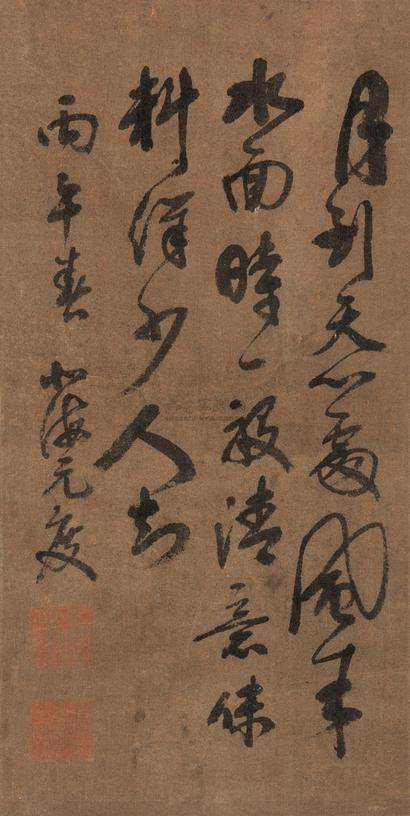 月到天心處風来
水面時一般清意味
料得少人知
丙午春 北海元度